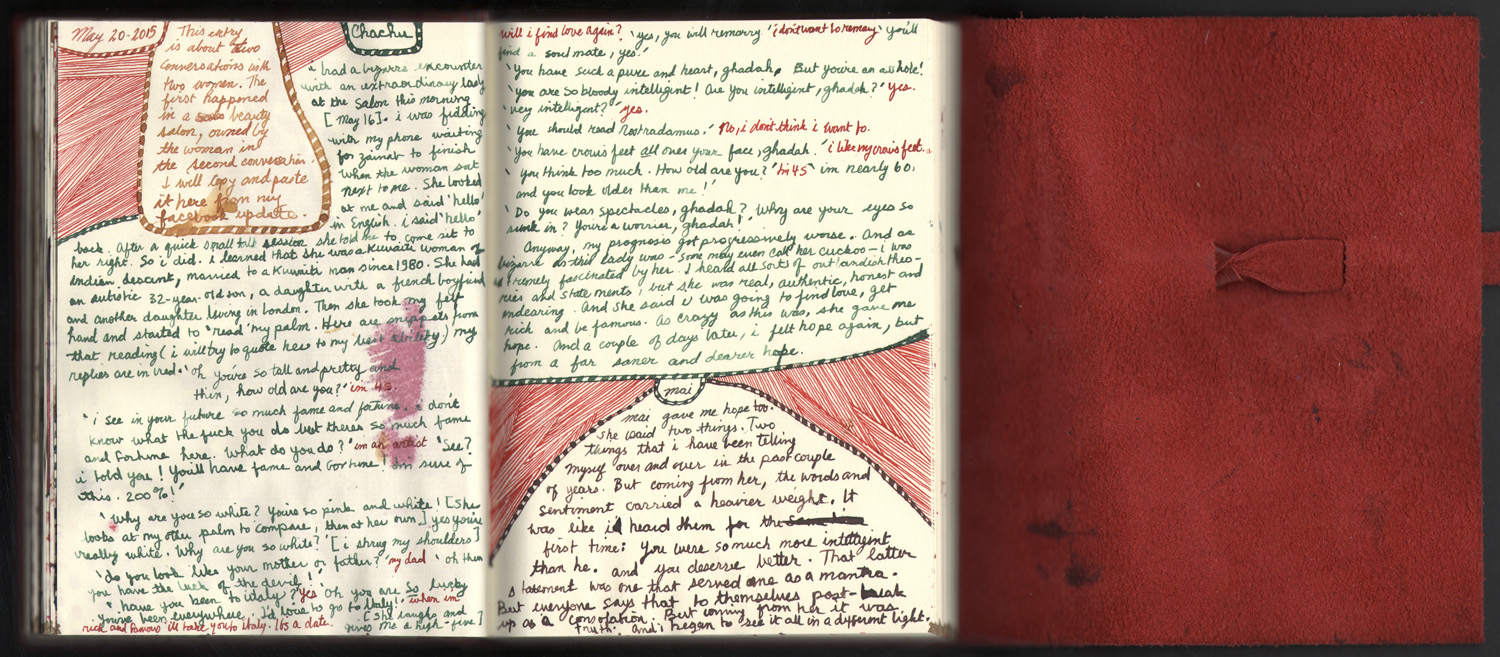 May 20-2015
This entry
is about two
conversations with
two women. The
first happened
in a beauty
salon, owned by
the woman in
the second conversation.
I will copy and paste
it here from my
facebook update.
Chachu
i had a bizarre encounter
with an extraordinary lady
at the salon this morning
[May 16]. i was fiddling
with my phone waiting
for zainat to finish
when the woman sat
next to me. She looked
at me and said 'hello'
in English. i said 'hello'
back. After a quick small talk session she told me to come sit to
her right. So i did. i learned that she was a Kuwaiti woman of
Indian descent, married to a Kuwaiti man since 1980. She had
an autistic 32-year-old son, a daughter with a french boyfriend
and another daughter living in London. Then she took my left
hand and started to 'read' my palm. Here are snippets from
that reading (i will try to quote her to my best ability;) my
replies are in red. 'oh you're so tall and pretty and
thin, how old are you?' 'im 45.
'i see in your future so much fame and fortune. i don't
know what the fuck you do but theres so much fame
and fortune here. What do you do?' 'im an artist 'See?
i told you! You'll have fame and fortune! Im sure of
this. 200%!'
'Why are you so white? You're so pink and white! [She
looks at my other palm to compare, then at her own] yes you're
really white. Why are you so white?' [i shrug my shoulders]
'do you look like your mother or father?' 'my dad' 'oh then
you have the luck of the devil!'
'have you been to italy?' 'yes 'Oh you are so lucky
You've been everywhere. I'd love to go to Italy!' 'when im
rich and famous ill take you to italy. Its a date. [She laughs and
gives me a high-five]
will i find love again?' 'yes, you will remarry' 'i don't want to remarry' 'you'll
find a soul mate, yes.'
'You have such a pure and heart, ghadah. But you're an asshole!
'you are so bloody intelligent! Are you intelligent, ghadah?' yes.
'very intelligent?' 'yes.
'You should read Nostradamus.' 'No, i don't think i want to.
'You have crow's feet all over your face, ghadah.' 'i like my crows feet.
'you think too much. How old are you?' 'im 45' 'im nearly 60.
and you look older than me!'
'Do you wear spectacles, ghadah? Why are your eyes so
sunk in? You're a worrier, ghadah!'
Anyway, my prognosis got progressively worse. And as
bizarre as this lady was - some may even call her cuckoo - i was
extremely fascinated by her. I heard all sorts of outlandish theo-
ries and statements, but she was real, authentic, honest and
endearing. And she said i was going to find love, get
rich and be famous. As crazy as this was, she gave me
hope. And a couple of days later, i felt hope again, but
from a far saner and dearer hope.
mai
mai gave me hope too.
She said two things. Two
things that i have been telling
myself over and over in the past couple
of years. But coming from her, the words and
sentiment carried a heavier weight. It
was like i heard them for the
first time: you were so much more intelligent
than he. and you deserve better. That latter
statement was one that served me as a mantra.
But everyone says that to themselves post-break
up as a consolation. But coming from her it was
truth. and i began to see it all in a different light.